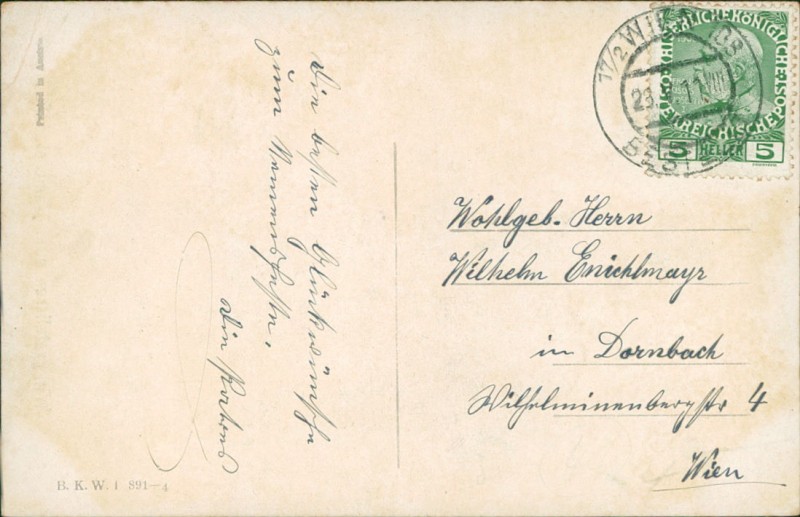 Printed in Austria
Die besten Glückwünsche
zum Namensfeste.
B. K. W. I 891-4
17/2 WIEN
KAISERLICHE KÖNIGLICHE
ÖSTERREICHISCHE POST
5 HELLER 5
Wohlgeb. Herrn
Wilhelm Enichlmayr
in Dornbach
Wilhelminenbergstr 4
Wien